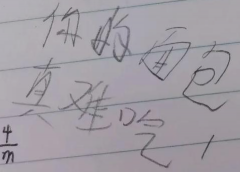 你的面包
真难吃！
4
m